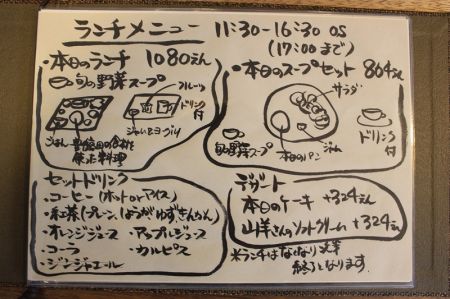 ランチメニュー 11:30-16:30 OS
(17:00まで)
・本日のランチ 1080えん
旬の野菜スープ
フルーツ
ドリンク付
ごはん
使った料理
ジャム&ヨーグルト
・本日のスープセット 864えん
サラダ
旬の野菜スープ
本日のパン
ジャム
ドリンク付
セットドリンク
・コーヒー(ホットorアイス)
・紅茶(プレーン、
・オレンジジュース ・アップルジュース
・コーラ ・カルピス
・ジンジャエール
デザート
本日のケーキ +324えん
山羊さんのソフトクリーム +324えん
※ランチはなくなり次第
終了となります。